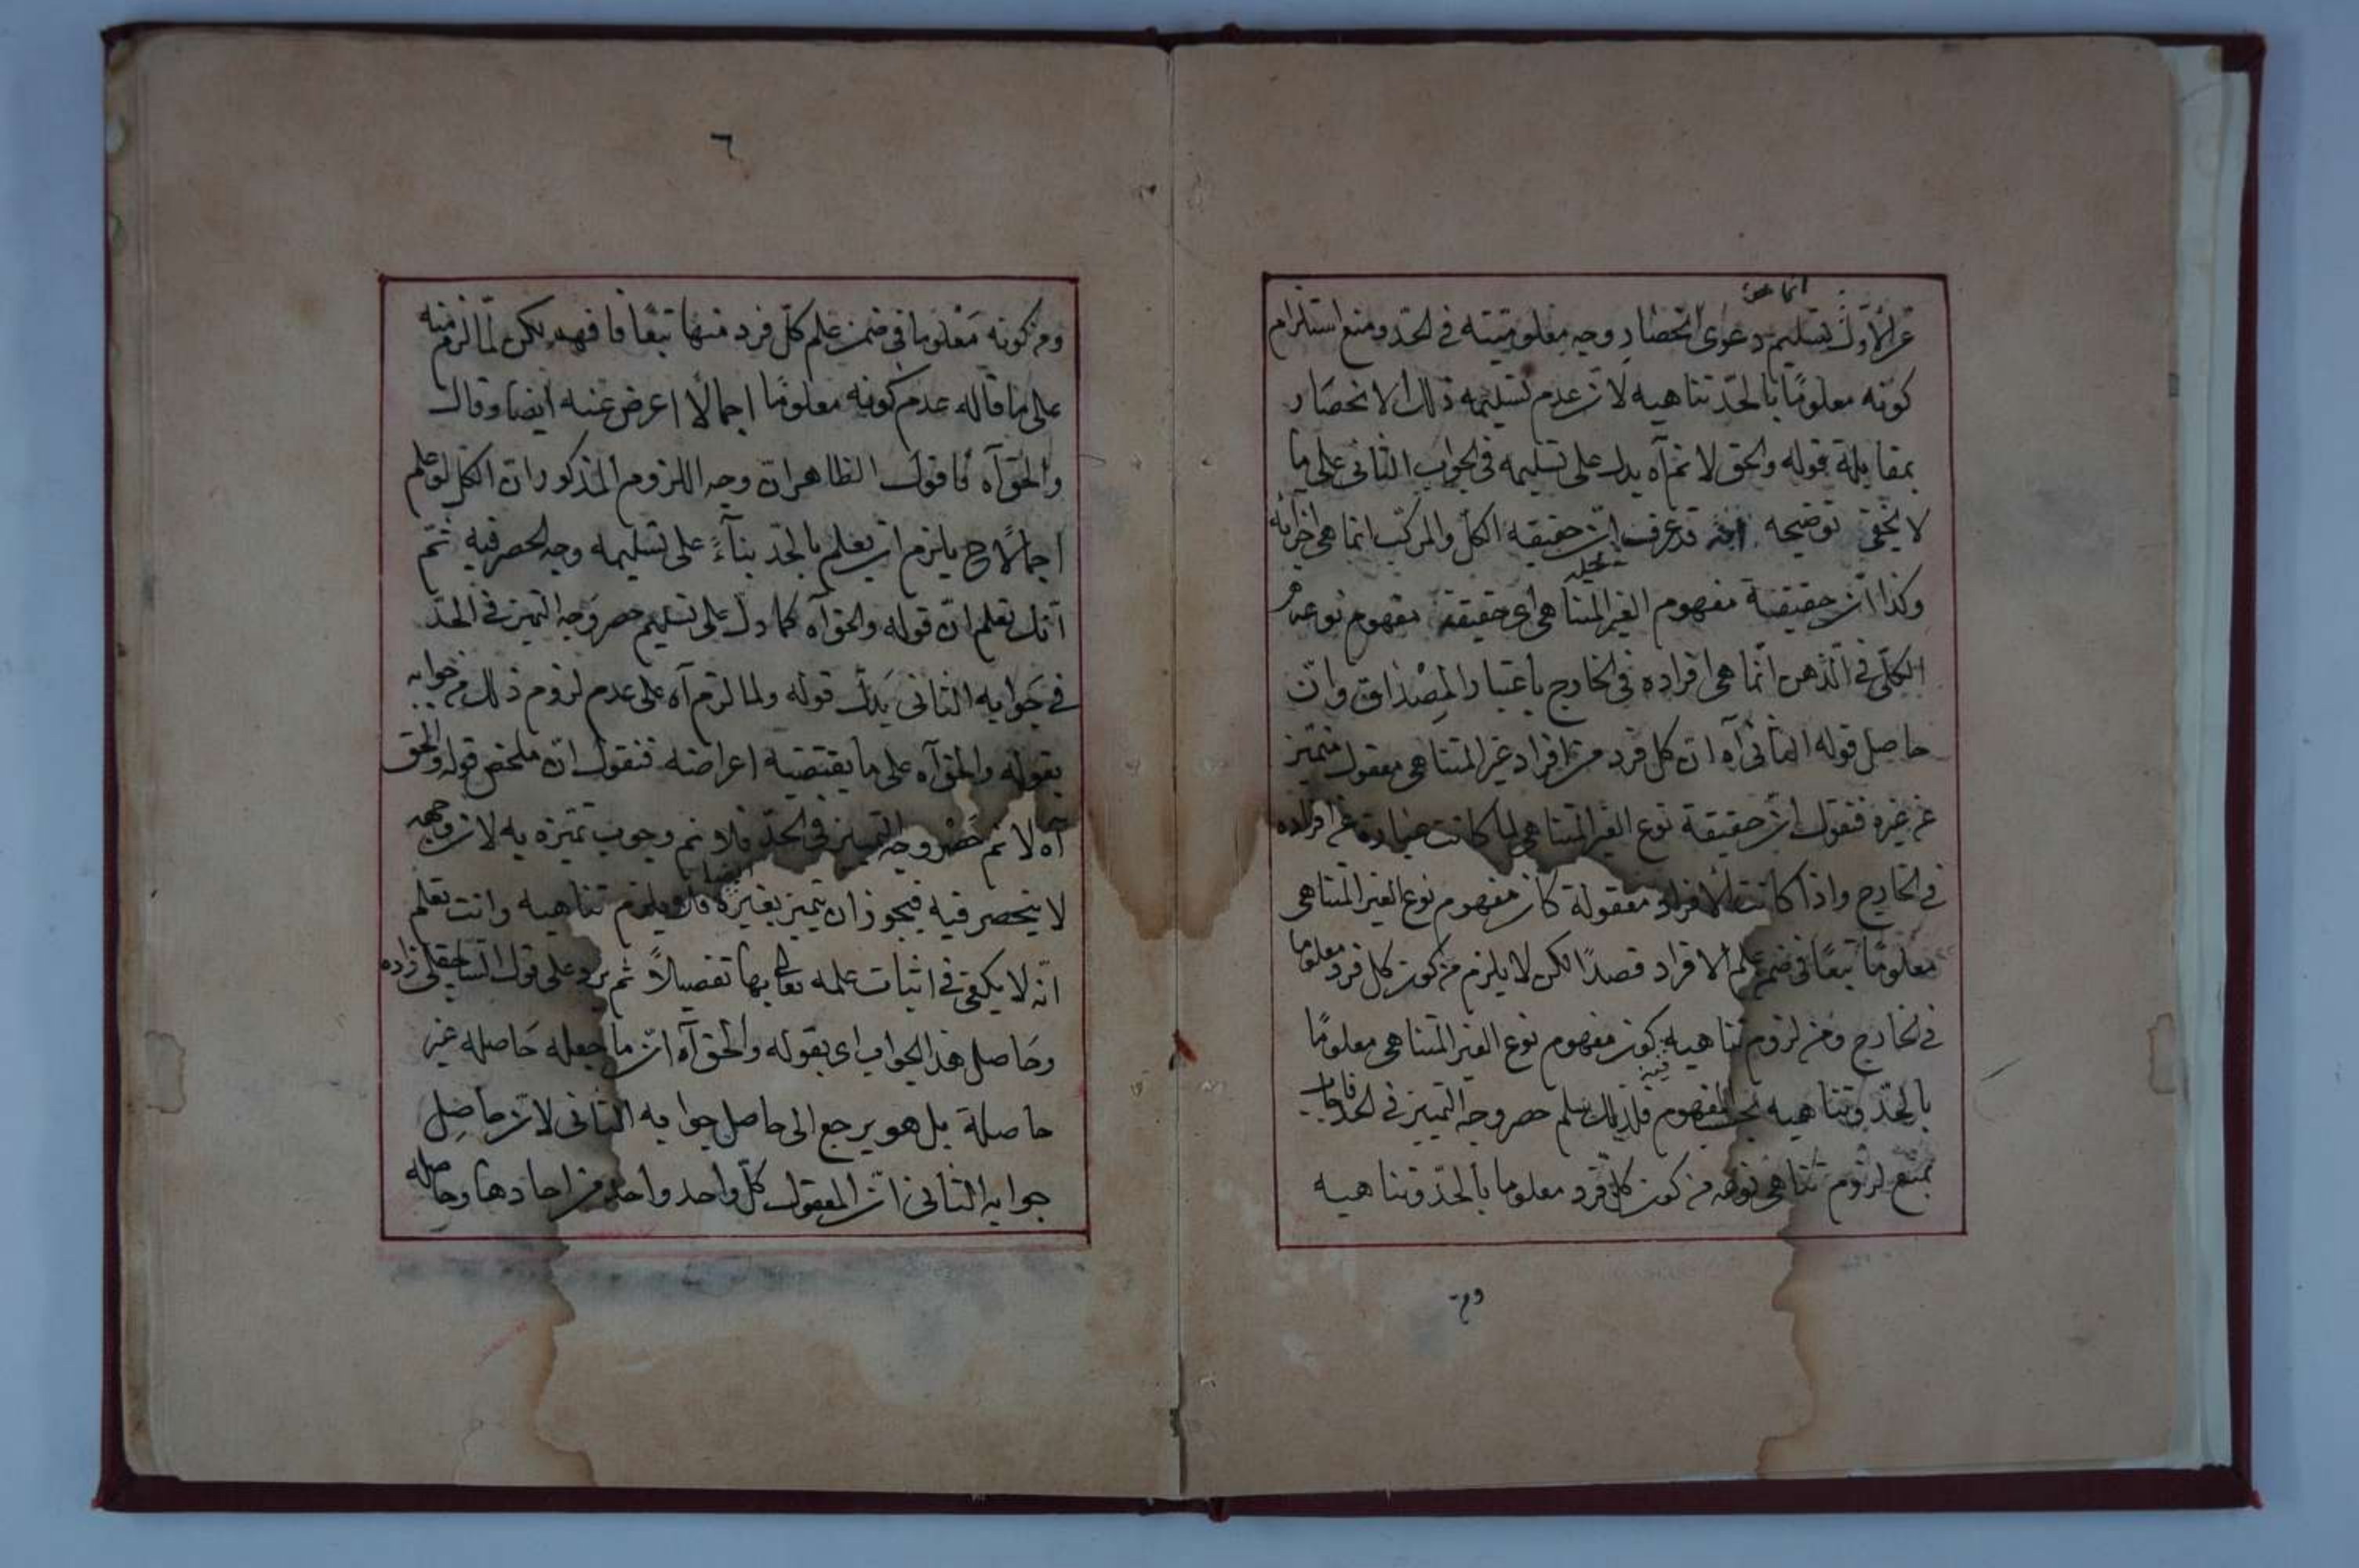 عن الأول بتسليم دعوى انحصار وجه معلوميته في الحد ومنع استلزام
كونه معلومًا بالحد تناهيه لان عدم تسليمه ذلك الانحصار
بمقابلة قوله والحق لا نم آه يدل على تسليمه في الجواب الثاني على ما
لا يخفى توضيحه قد عرفت ان حقيقة الكل والمركب انما هي اجزائه
وكذا ان حقيقة مفهوم الغير المتناهي اى حقيقة مفهوم نوعه
الكلّي في الذهن انّما هي افراده في الخارج باعتبار المِصْداق وانّ
حاصل قوله الثاني آه ان كل فرد من افراد غير المتناهي معقول متميز
عن غيره فنقول انّ حقيقة نوع الغير المتناهي لما كانت عبارة عن افراده
في الخارج واذا كانت الافراد معقولة كان مفهوم نوع الغير المتناهي
معلومًا تبعًا في ضمن علم الافراد قصدًا لكن لا يلزم من كون كل فرد معلوما
في الخارج ومن لزوم تناهيه كون مفهوم نوع الغير المتناهي معلومًا
بالحدّ وتناهيه المفهوم فلذلك سلم حصر وجه التميز في الحد
بمنع لزوم تناهي نوعه من كون كل فرد معلوما بالحدّ وتناهيه
ومن
٦
ومن كونه مَعْلوما في ضمن علم كلّ فرد منها تبعًا فافهم لكن لمّا لزم منه
على ما قاله عدم كونه معلومًا اجمالًا اعرض عنه ايضا وقال
والحق آه فاقول الظاهر انّ وجه اللزوم المذكور انّ الكل لو علم
اجمالًا ح يلزم ان يعلم بالحدّ بناءً على تسليمه وجه الحصر فيه ثم
انك تعلم انّ قوله والحق آه كما دلّ على تسليم حصر وَجه التميز في الحدّ
في جَوابه الثاني يَدلّ قوله ولما لزم آه على عدم لزوم ذلك من جوابه
بقوله والحق آه على ما يقتضيه اعراضه فنقول انّ ملخص قوله والحق
آه لا نم حَصْر وجه التميز في الحدّ فلا نم وجوب تميّزه به لان وجهه
لا ينحصر فيه فيجوز ان يتميز بغيره ايضا فلا يلزم تناهيه وانت تعلم
انّه لا يكفى في اثبات علمه تعالى بها تفصيلاً ثم يرد على قول الساجقلى زاده
وحَاصل هذا الجواب اى بقوله والحق آه انّ ما جعله حَاصله غير
حاصلة بل هو يرجع الى حاصل جوابه الثاني لانّ حاصِل
جوابه الثاني انّ المعقول كلّ واحد واحد من احادها وحاصله